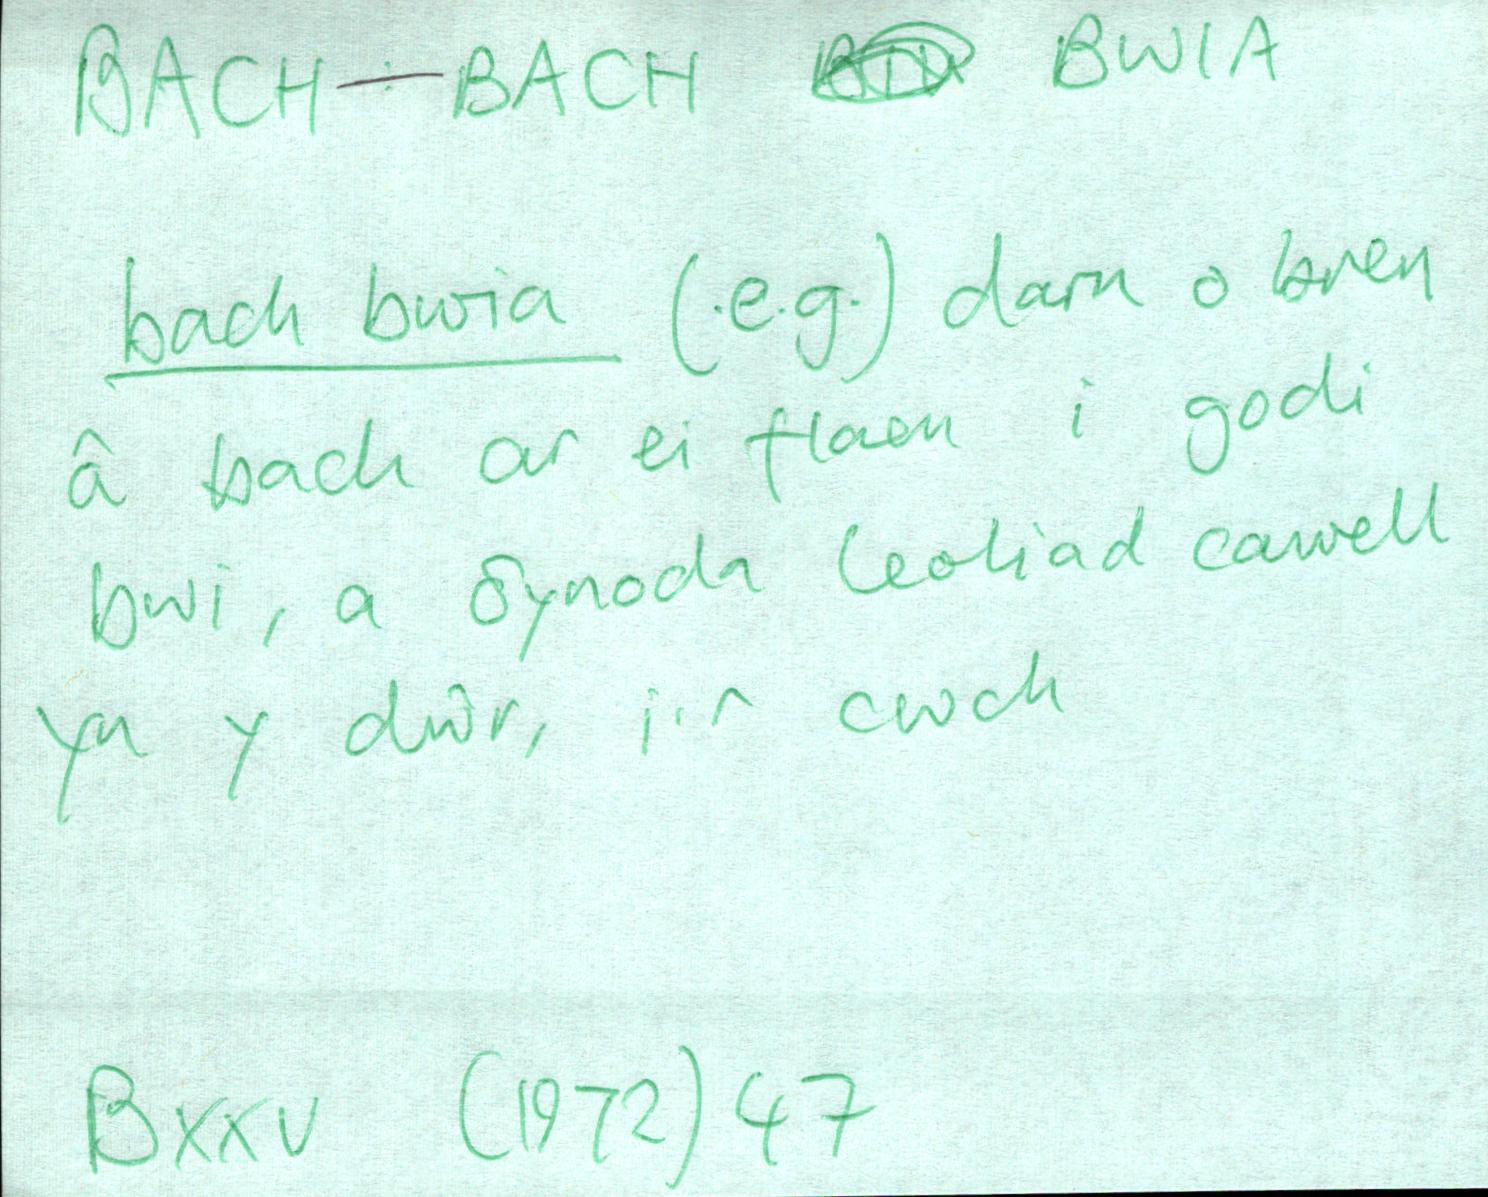 BACH — BACH BWIA
bach bwia (.e.g.) darn o bren
â bach ar ei flaen i godi
bwi, a ðynoda leoliad cawell
yn y dŵr, i'r cwch
B xxv (1972) 47